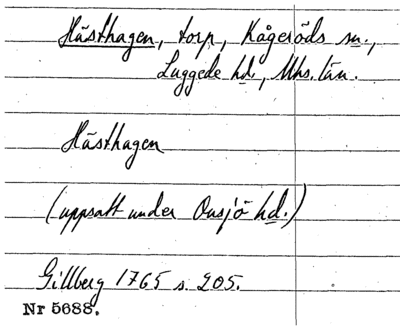 Hästhagen, torp, Kågeröds sn.,
Luggude hd, Mhs. län.
Hästhagen
(uppsatt under Onsjö hd.)
Gillberg 1765 s. 205.
Nr 5688.